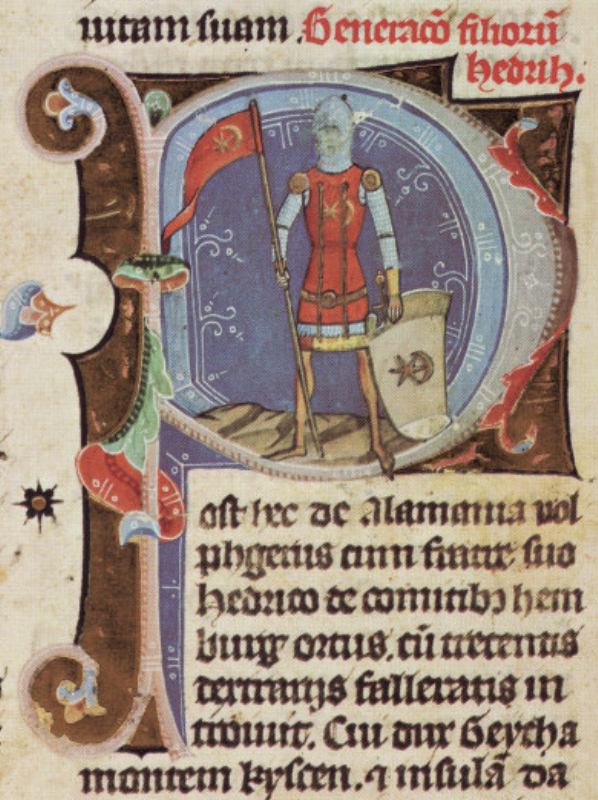 uitam suam. Generacō filiorū
hedrih.
Post hec de Alamania vol
phgerus cum fratre suo
hedrico de comitibꝫ hem
burg ortus. cū trecentis
dextrarijs falleratis in
trouuit. Cui dux Geycha
montem kyscen. ⁊ insulā da